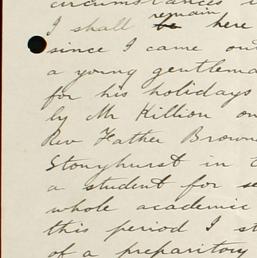 circumstances
I shall remain be here
since I came out
a young gentlema
for his holidays
by Mr Killion on
Rev Father Brown
Stonyhurst in t
a student for se
whole academic
this period I st
of a preparitory